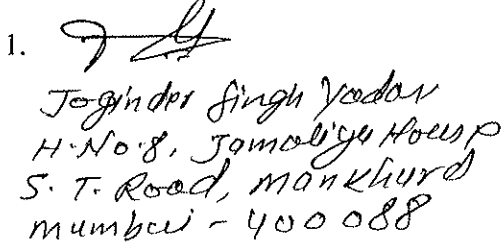 1.
Joginder Singh Yadav
H.No.8, Jamaliya House
S. T. Road, Mankhurd
Mumbai - 400088